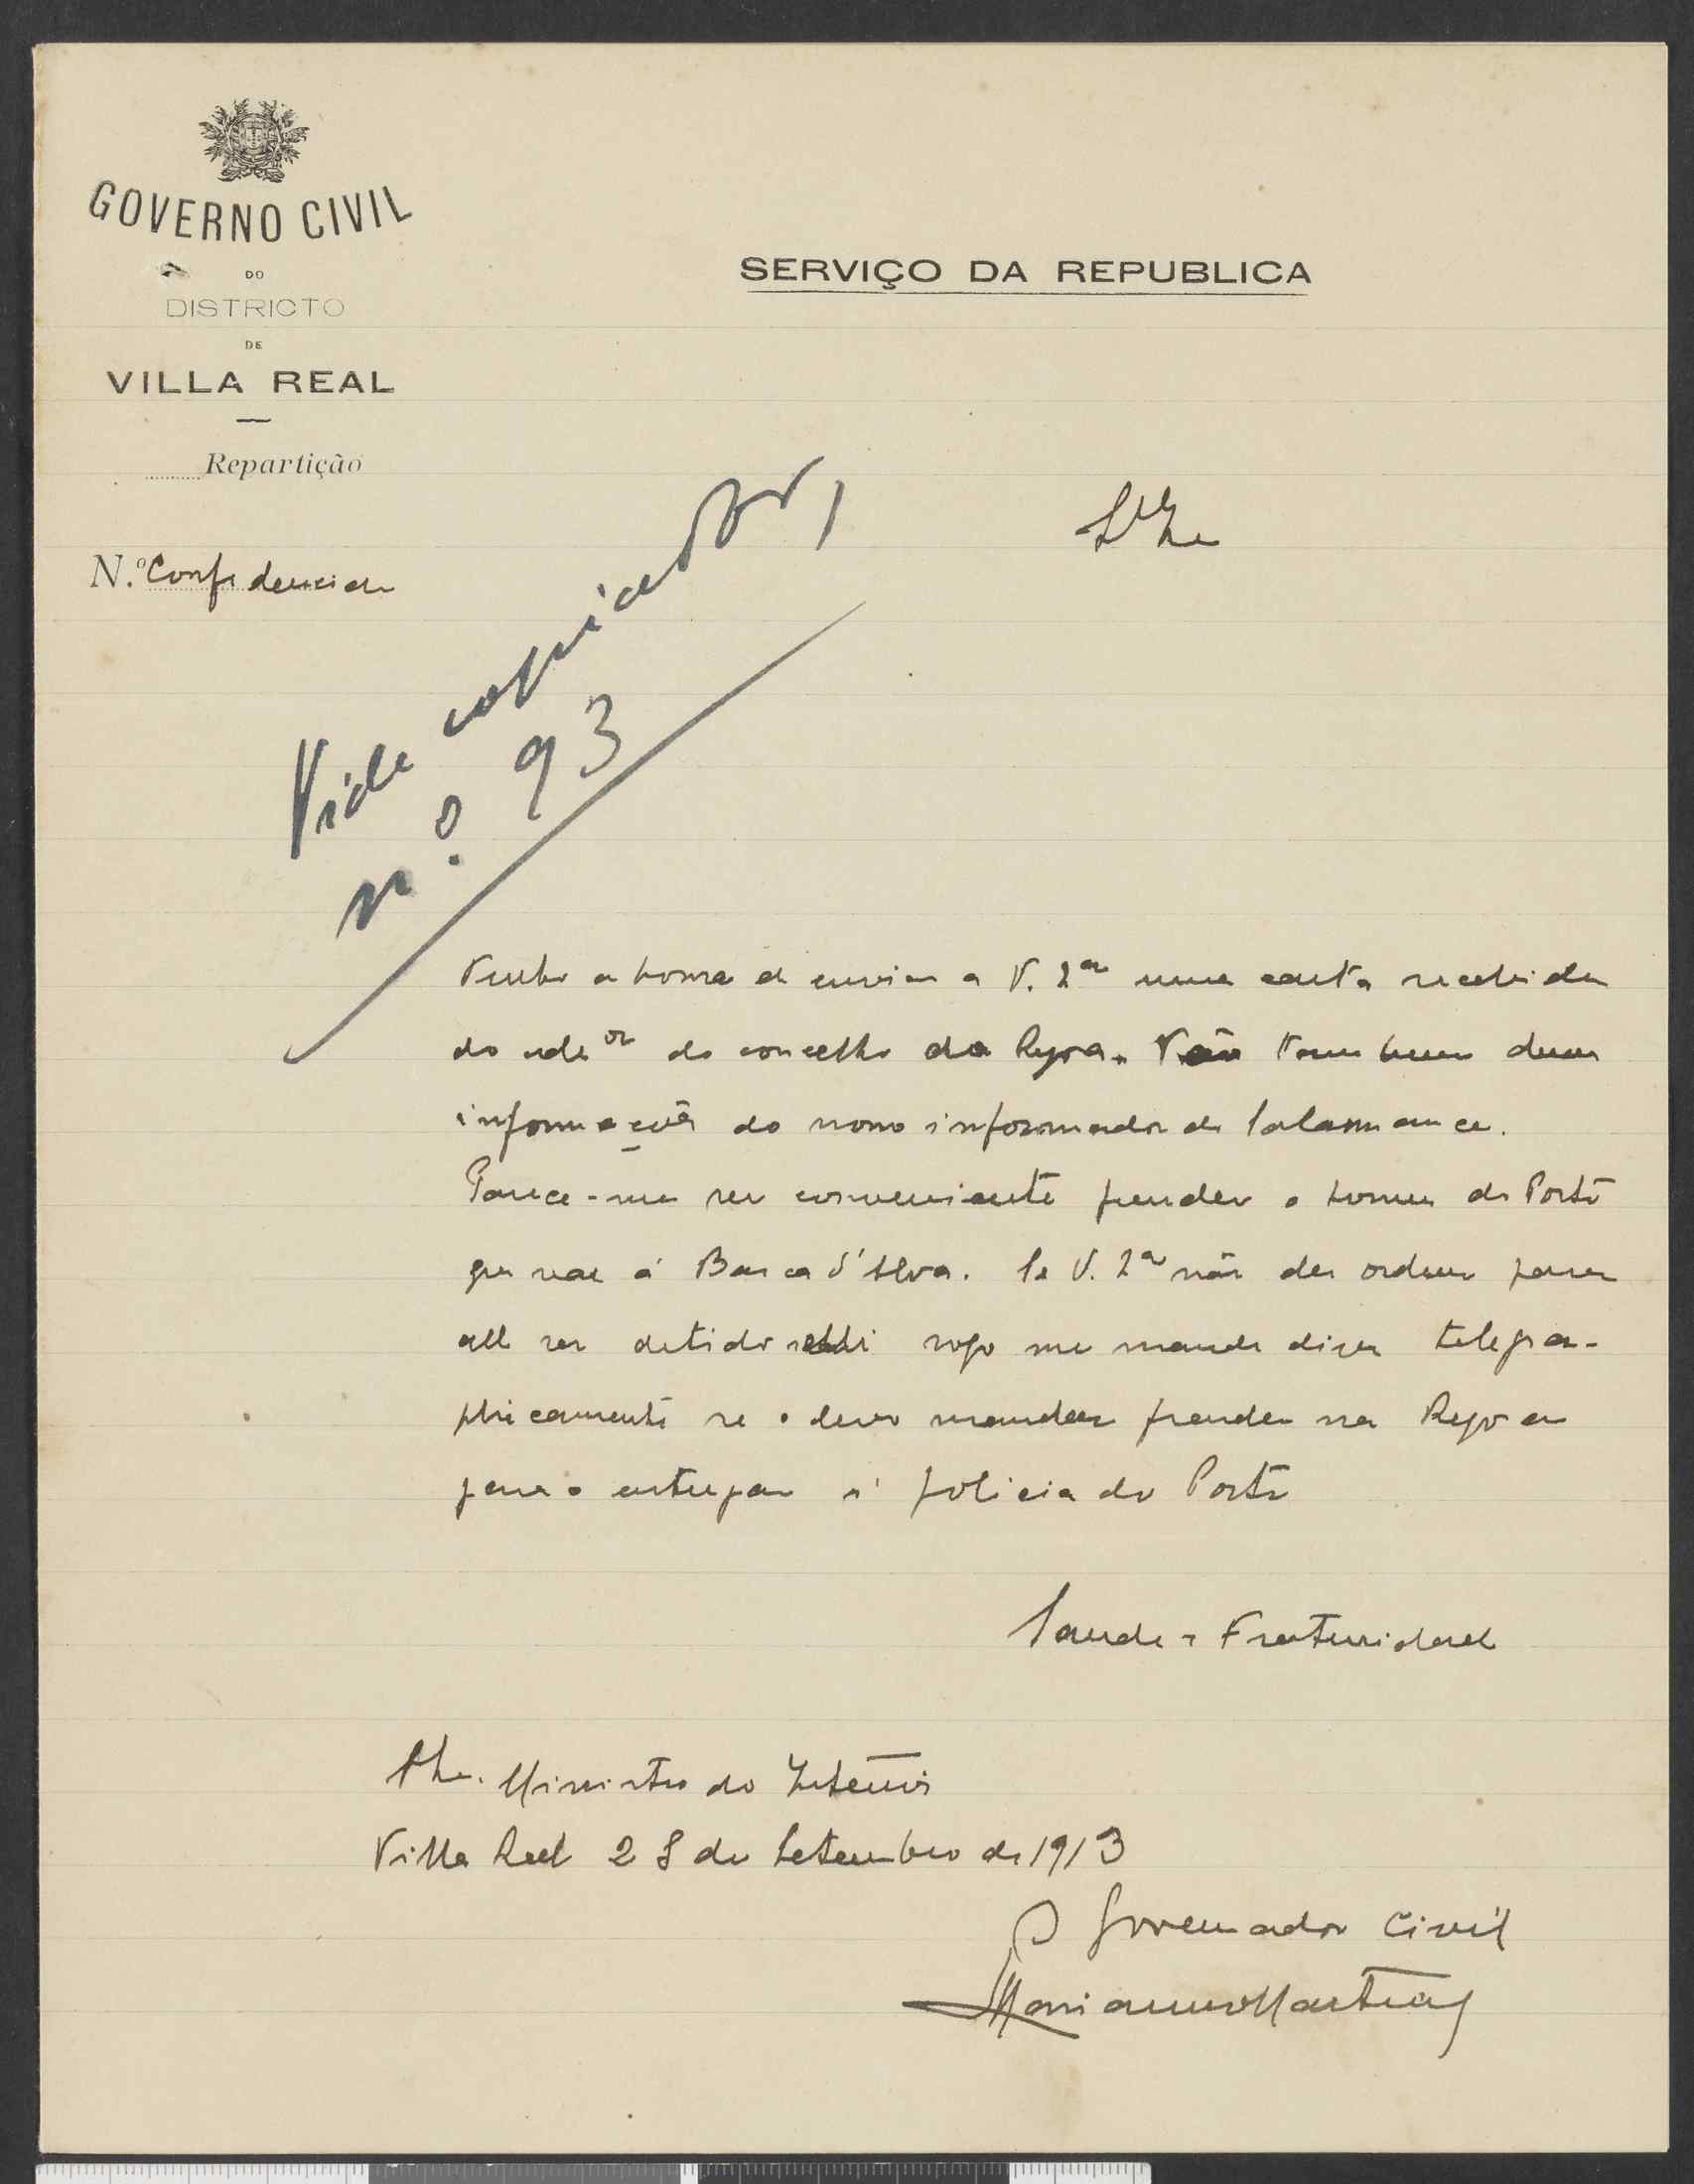 GOVERNO CIVIL
DO
DISTRICTO
DE
VILLA REAL
Repartição
N.º Confidencial
SERVIÇO DA REPUBLICA
Vide copiador,
n.º 93
Tenho a honra de enviar a V. Exª uma carta recebida
do adºr do concelho da Regoa. Vão tambem duas
informações do nosso informador de Salamanca.
Parece-me ser conveniente prender o homem do Porto
que vae á Barca d'Alva. Se V. Exª não der ordem para
elle ser detido rogo me mande dizer telegra-
phicamente se o devo mandar prender na Regoa
para o entregar á policia do Porto
Saude e Fraternidade
Ministro do Interior
Villa Real 28 de Setembro de 1913
O Governador Civil
Marianno Martins